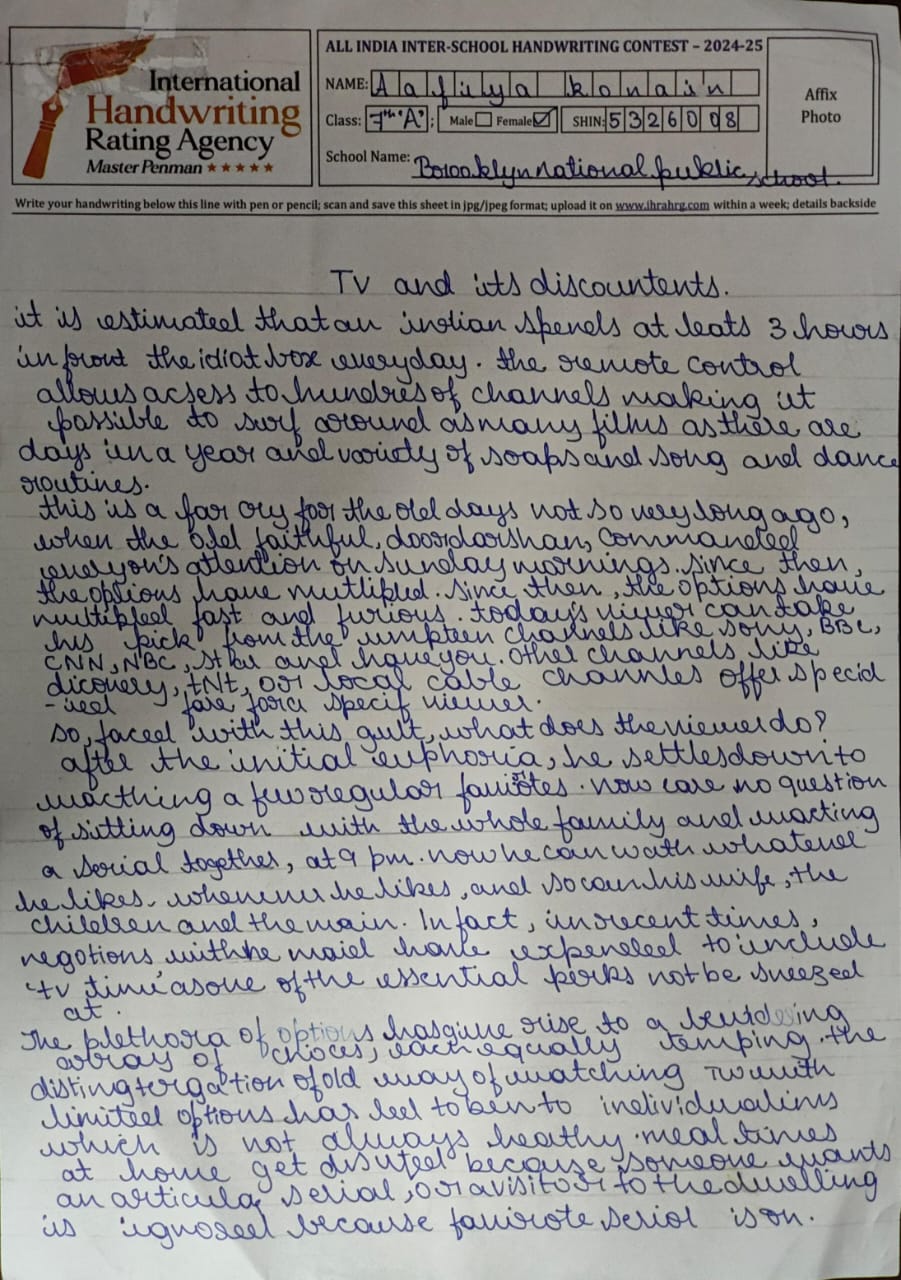 ALL INDIA INTER-SCHOOL HANDWRITING CONTEST – 2024-25
International
Handwriting
Rating Agency
Master Penman ★★★★★
NAME: Aafiya konain
Class: 7th "A"; Male Female SHIN: 53260 08
School Name: Borooklyn national public school.
Affix
Photo
Write your handwriting below this line with pen or pencil; scan and save this sheet in jpg/jpeg format; upload it on www.ihrahrg.com within a week; details backside
TV and its discountents.
it is estimated that an indian spends at leats 3 hours
in front the idiot box everyday. the remote control
allows acsess to hundres of channels making it
possible to surf around as many films as there are
days in a year and variety of soaps and song and dance
routines.
this is a far cry for the old days not so very long ago,
when the old faithful, doordarshan, commanded
everyon's attention on sunday mornings. since then,
the options have mutlipled. since then, the options have
multipleed fast and furious. today's viewer can take
his pick from the umpteen channels like sony, BBC,
CNN, NBC, star and have you. Other channels like
dicovery, tNt, or local cable channles offer specid
-ised fare for a specif viewer.
so, faced with this gult, what does the viewer do?
after the initial euphoria, he settles down to
wacthing a few regular faviotes. now care no question
of sitting down with the whole family and wacting
a serial together, at 9 pm. now he can wath whatever
he likes. whenever he likes, and so can his wife, the
children and the main. In fact, in recent times,
negotions with he maid have expended to include
'tv time' as one of the essential perks not be sneezed
at.
The plethora of options has give rise to a
array of choices, each equally temping. the
distingtergation of old way of watching TV with
limited options has led to individualims
which is not always heathy. meal times
at home get disuted because someone wants
an articular serial, or a visitor to the dwelling
is ignored because favirote seriol is on.